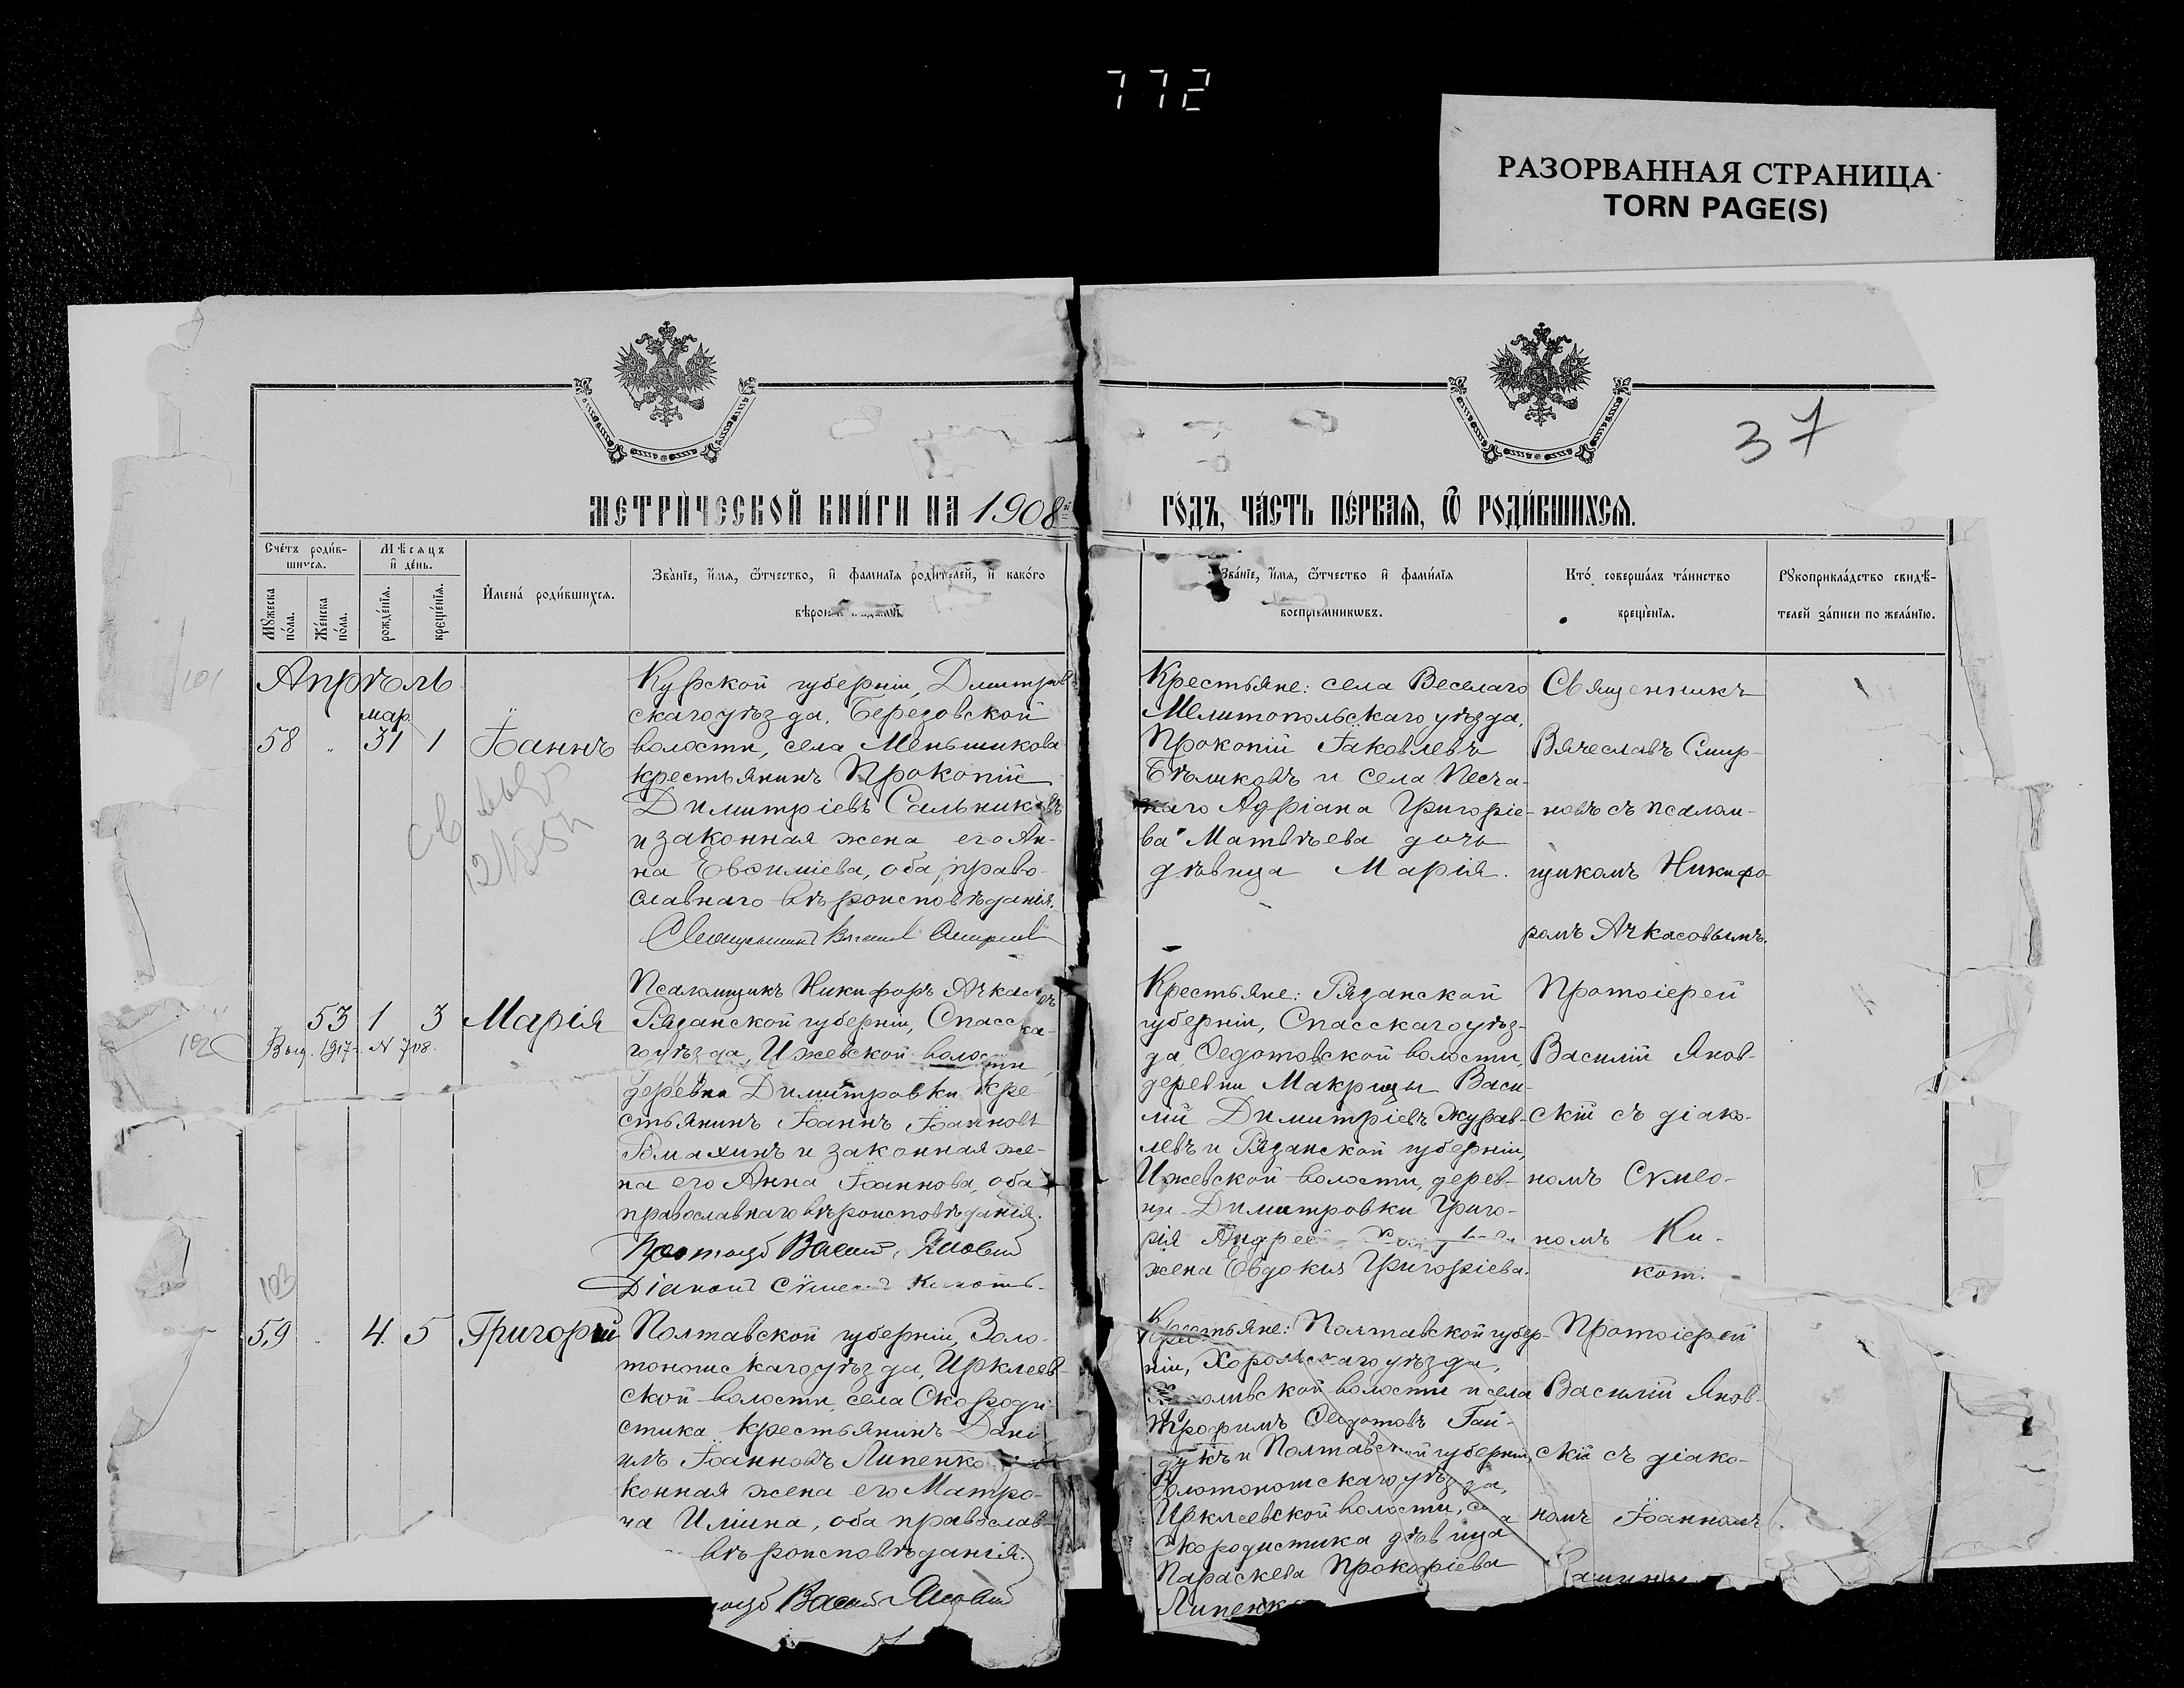 772
РАЗОРВАННАЯ СТРАНИЦА
TORN PAGE(S)
37
МЕТРИЧЕСКОЙ КНИГИ НА 1908 й
ГОДЪ, ЧАСТЬ ПЕРВАЯ, Ѿ РОДИВШИХСЯ.
Счетъ родив-
шихся.
Мѣсяцъ
и день.
Мꙋжеска
пола.
Женска
пола.
рожденїя.
крещенїя.
Имена родившихся.
Званїе, имя, ѿтчество, и фамилїя родителей, и какого
Званїе, имя, ѿтчество и фамилїя
воспрїемникѡвъ.
Кто совершалъ таинство
крещенїя.
Рꙋкоприкладство свидѣ-
телей записи по желанїю.
101
Апрѣль
мар.
58 " 31 1
Іоаннъ
Курской губерніи, Дмитров
скаго уѣзда, Березовской
волости, села Меньшикова
крестьянинъ Прокопій
Димитріевъ Сальниковъ
и законная жена его Ан-
на Евѳиміева, оба право-
славнаго вѣроисповѣданія.
Псаломщикъ Никифоръ Ачкасовъ
Крестьяне: села Веселаго
Мелитопольскаго уѣзда,
Прокопій Іаковлевъ
Бѣликовъ и села Песча-
наго Адріана Григоріе-
ва Матвѣева дочь
дѣвица Марія.
Священникъ
Вячеславъ Смир-
новъ съ псалом-
щикомъ Никифо-
ромъ Ачкасовымъ.
102
53 1 3
Выд. 1917 - N 708.
Марія
Рязанской губерніи, Спасска-
го уѣзда, Ижевской волости
деревни Димитровки кре-
стьянинъ Іоаннъ Іоанновъ
Ромахинъ и законная же-
на его Анна Іоаннова, оба
православнаго вѣроисповѣданія.
Діаконъ
Крестьяне: Рязанской
губерніи, Спасскаго уѣз-
да Ѳедотовской волости,
деревни Макрицы Васи-
лій Димитріевъ Журав-
левъ и Рязанской губерніи,
Ижевской волости, дерев-
ни Димитровки Григо-
рія
жена Евдокія Григоріева.
Протоіерей
Василій Янов-
скій съ діако-
номъ Сѵмео-
номъ Ки-
кот.
103
59 " 4. 5
Григорій
Полтавской губерніи, Золо-
тоношскаго уѣзда, Ирклеев-
ской волости, села Скороди-
стика крестьянинъ Дані-
илъ Іоанновъ Липенко
конная жена его Матро-
на Иліина, оба православ-
вѣроисповѣданія.
Крестьяне: Полтавской губер-
ніи, Хорольскаго уѣзда,
волости и села
Трофимъ Ѳедотовъ Гай-
дукъ и Полтавской губерніи,
Золотоношскаго уѣзда,
Ирклеевской волости, села
Скородистика дѣвица
Параскева Прокофіева
Липенко
Протоіерей
Василій Янов-
скій съ діако-
номъ Іоанномъ